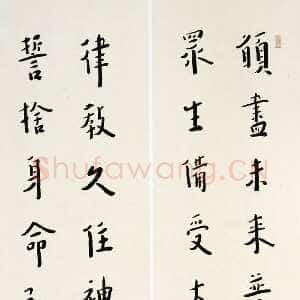 願盡未来
眾生備受
誓捨身命
律教久住神
Shufawang.cn